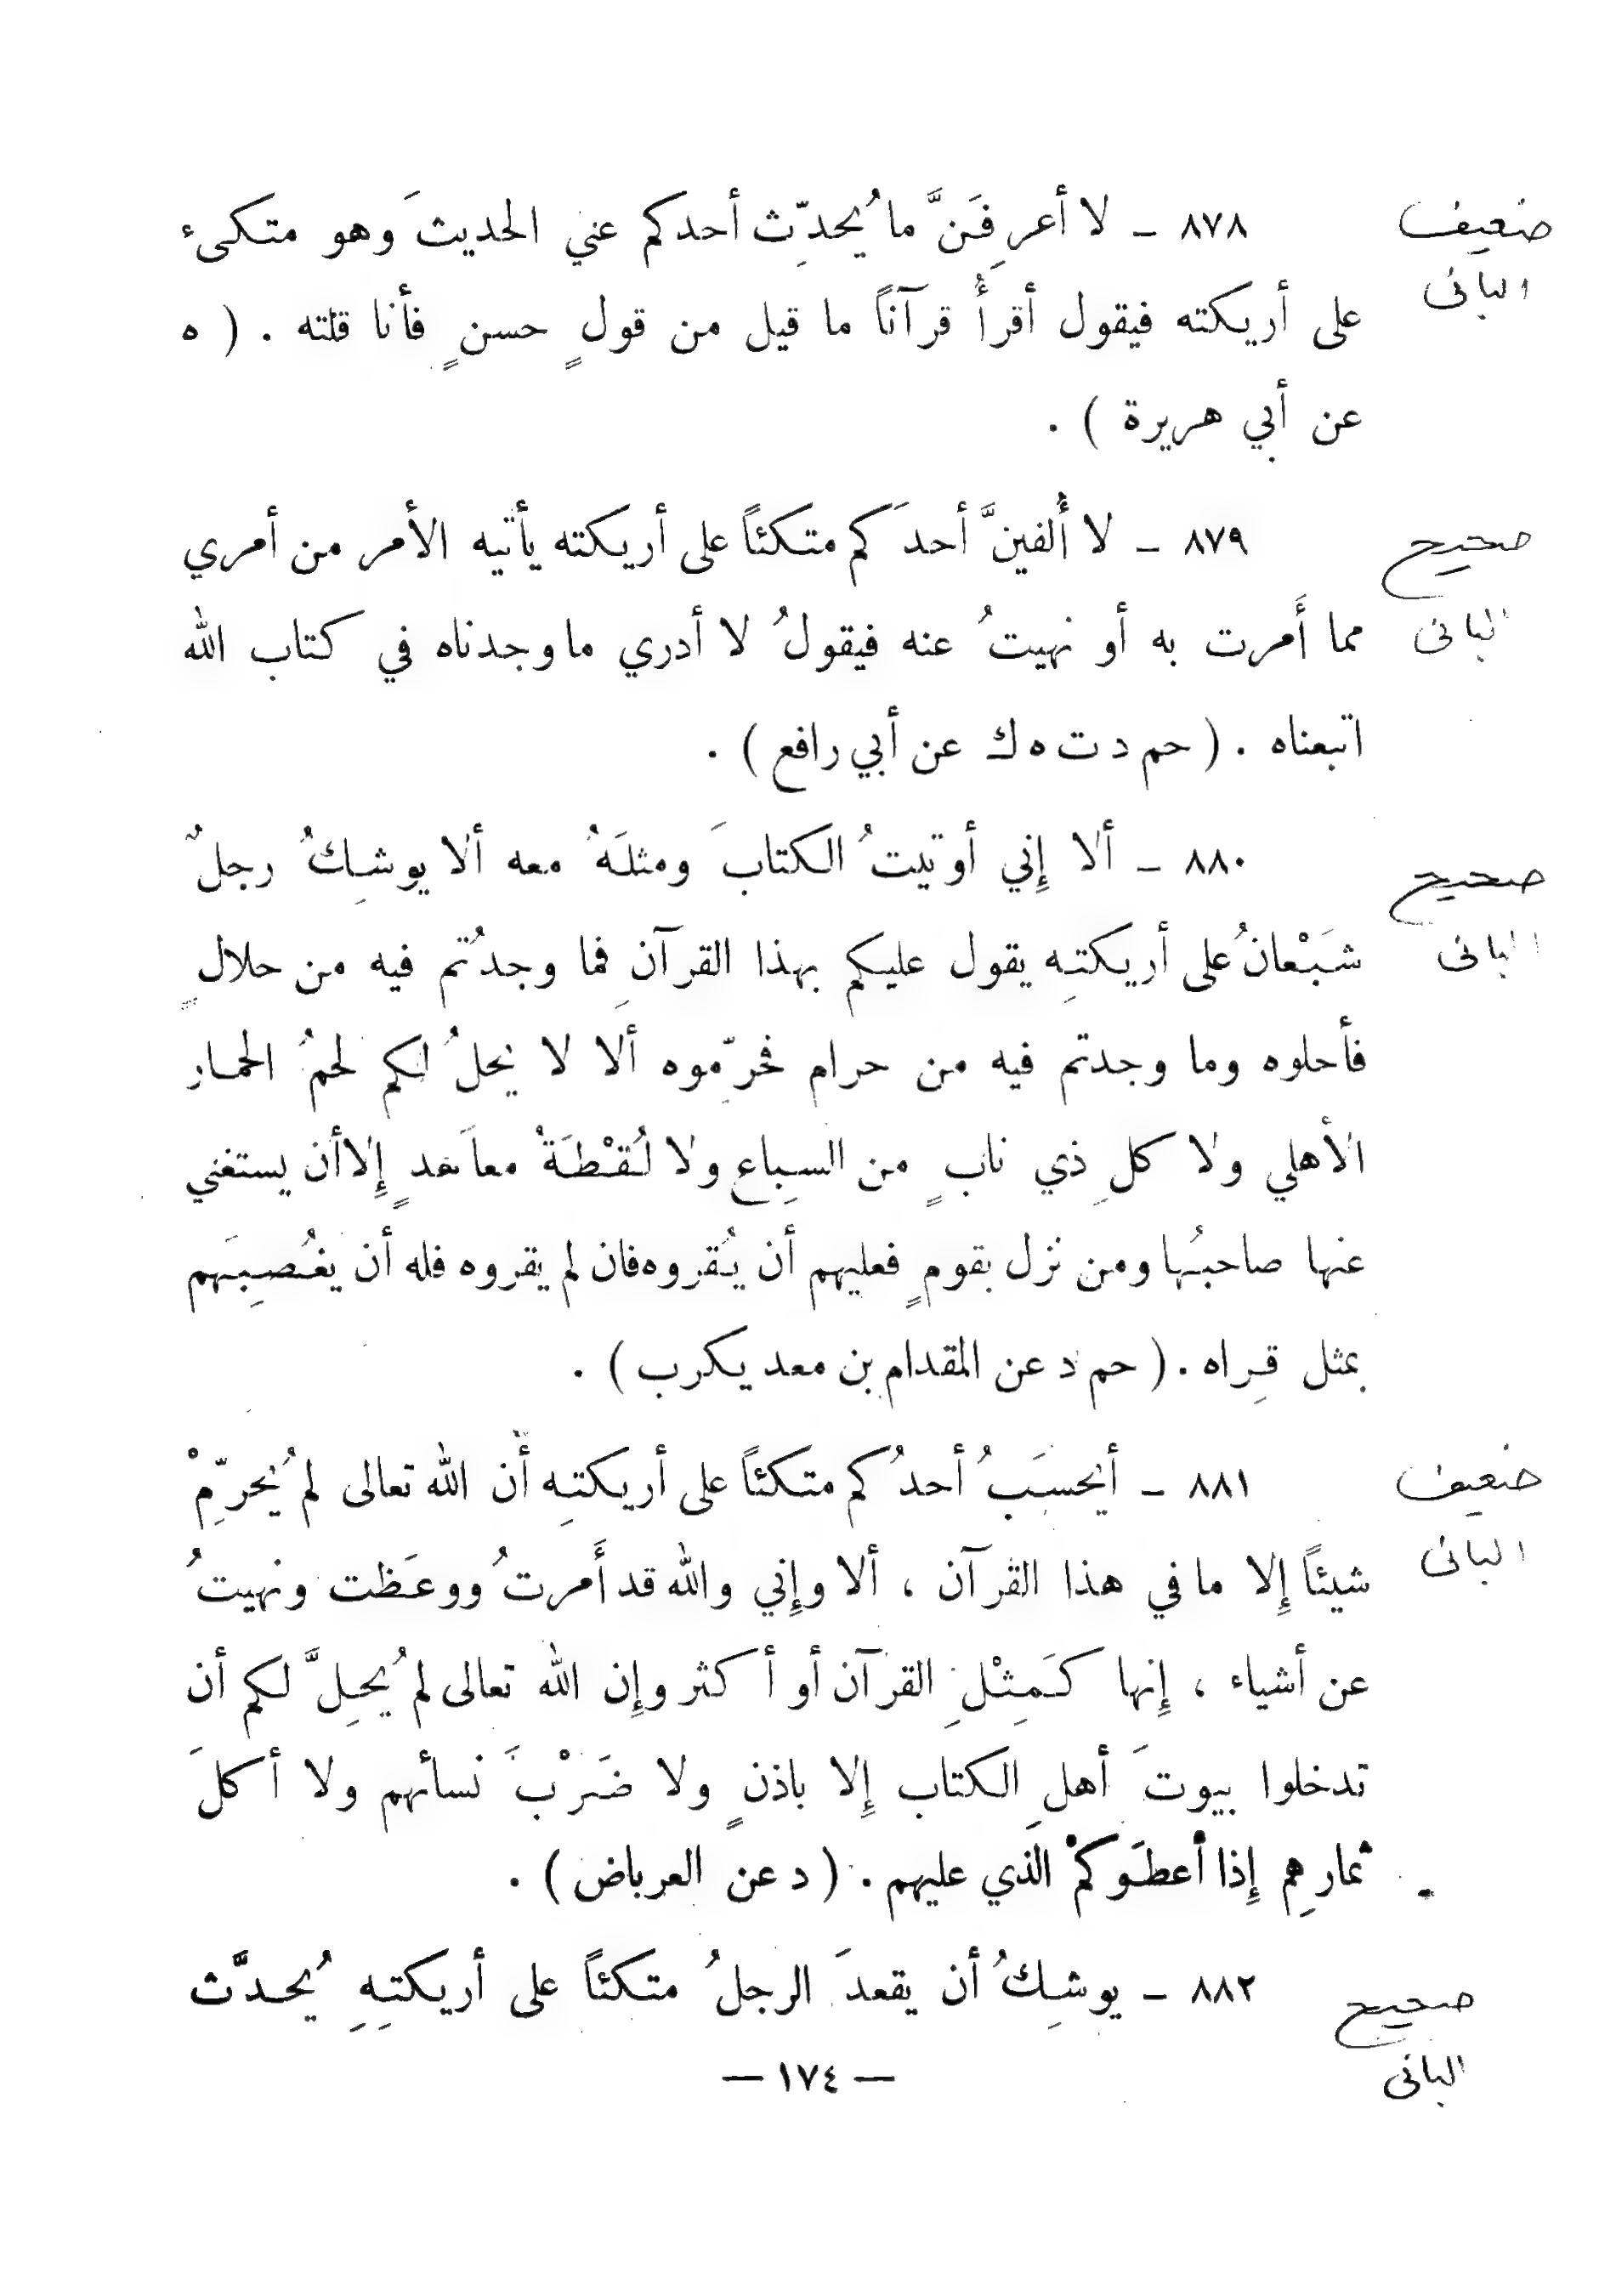 ٨٧٨ ـ لا أعرِفَنَّ ما يُحدِّث أحدكم عني الحديثَ وهو متكىء
ضعيف
البانى
على أريكته فيقول أقرأُ قرآناً ما قيل من قولٍ حسنٍ فأنا قلته . ( ه
عن أبي هريرة ) .
٨٧٩ ـ لا أُلفينَّ أحدَكم متكئاً على أريكته يأتيه الأمر من أمري
صحيح
البانى
مما أَمرت به أو نهيتُ عنه فيقولُ لا أدري ما وجدناه في كتاب الله
اتبعناه . ( حم د ت ه ك عن أبي رافع ) .
٨٨٠ ـ ألا إِني أوتيتُ الكتابَ ومثلَهُ معه ألا يوشِكُ رجلٌ
صحيح
البانى
شَبْعانُ على أريكتِه يقول عليكم بهذا القرآنِ فما وجدُتم فيه من حلالٍ
فأحلوه وما وجدتم فيه من حرام فحرِّموه ألا لا يحلُ لكم لحمُ الحمار
الأهلي ولا كلِ ذي نابٍ من السِباع ولا لُقْطَةُ معاَهدٍ إِلا أن يستغني
عنها صاحبُها ومن نزل بقومٍ فعليهم أن يُقروه فان لم يقروه فله أن يغُصِبَهم
بمثل قِراه . ( حم د عن المقدام بن معد يكرب ) .
٨٨١ ـ أيحسَبُ أحدُكم متكئاً على أريكتِه أن الله تعالى لم يُحرِّمْ
ضعيف
البانى
شيئاً إِلا ما في هذا القرآن ، ألا وإِني والله قد أَمرتُ ووعَظت ونهيتُ
عن أشياء ، إِنها كَمِثْلِ القرآن أو أكثر وإِن الله تعالى لم يُحِلَّ لكم أن
تدخلوا بيوتَ أهلِ الكتاب إِلا باذنٍ ولا ضَرْبَ نسائهم ولا أكلَ
ثمارِهم إِذا أعطَوكمْ الذي عليهم . ( د عن العرباض ) .
٨٨٢ ـ يوشِكُ أن يقعدَ الرجلُ متكئاً على أريكتِهِ يُحدَّث
صحيح
البانى
— ١٧٤ —